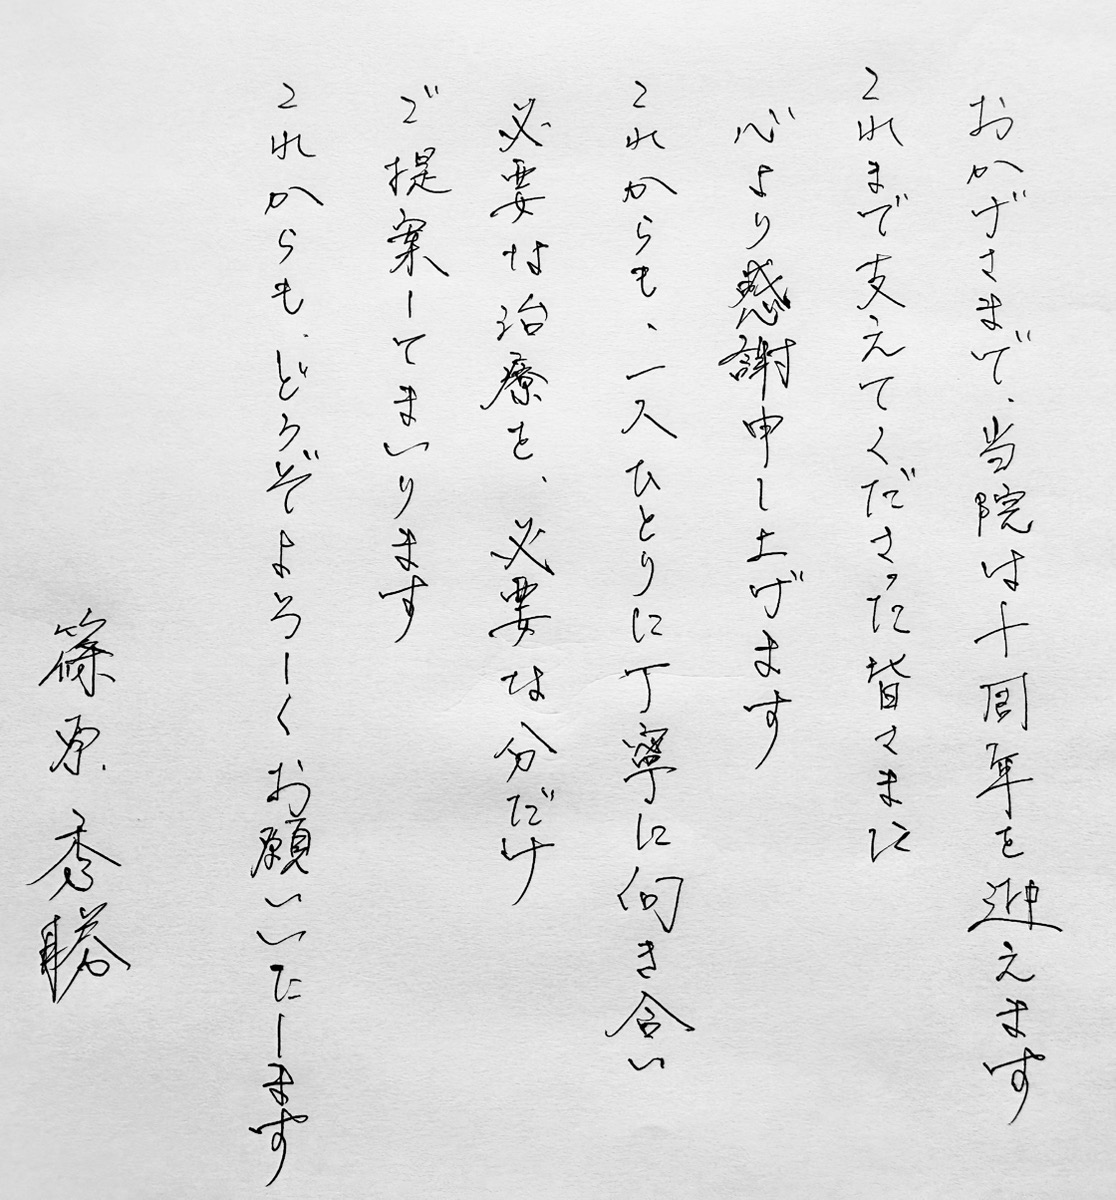 おかげさまで、当院は十周年を迎えます
これまで支えてくださった皆さまに
心より感謝申し上げます
これからも、一人ひとりに丁寧に向き合い
必要な治療を、必要な分だけ
ご提案してまいります
これからも、どうぞよろしくお願いいたします
篠原 秀勝